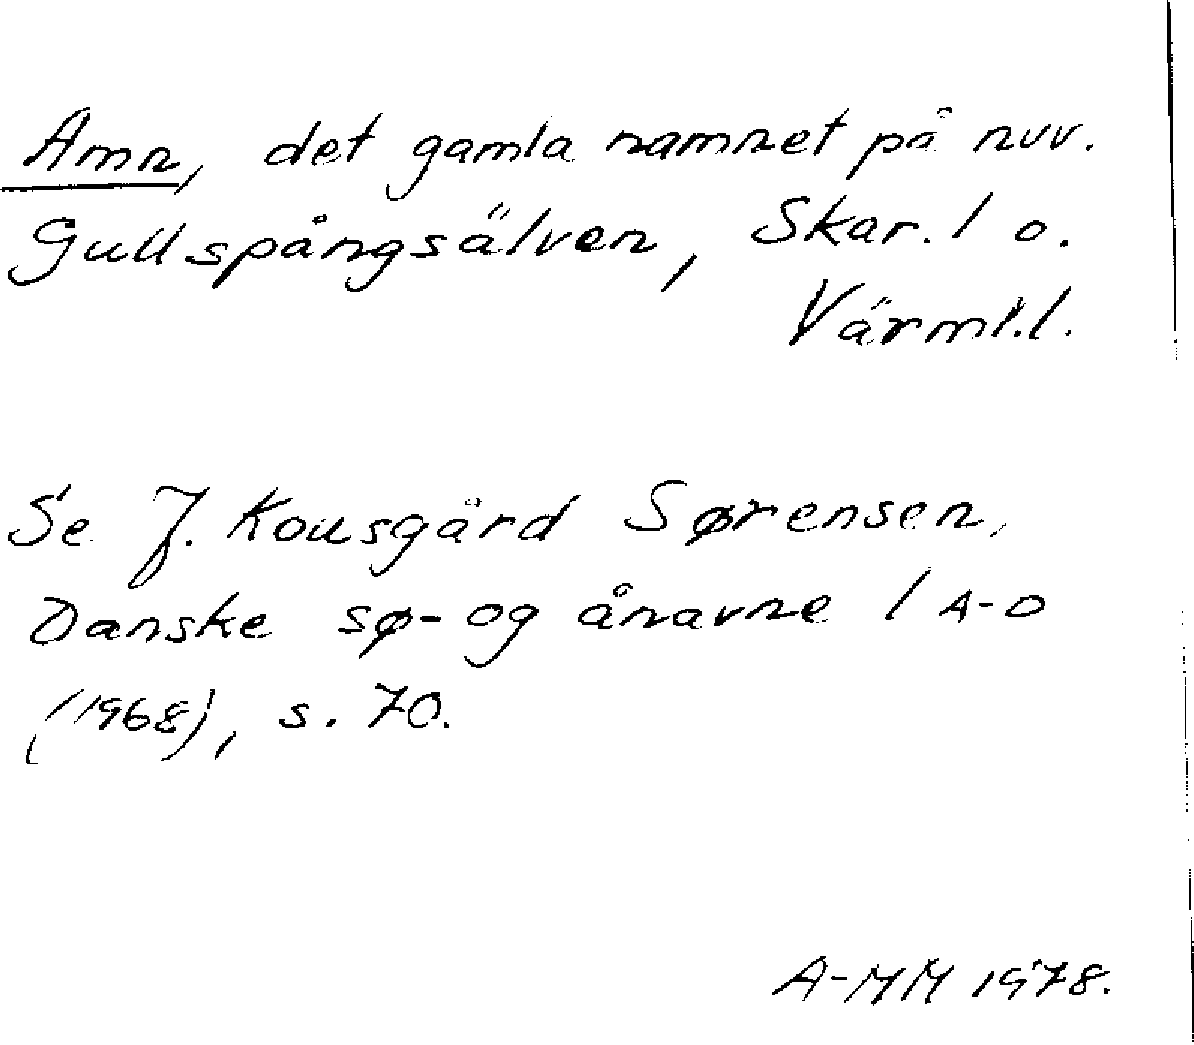 Amn, det gamla namnet på nuv.
Gullspångsälven, Skar. l o.
Värml.l.
Se J. Kousgård Sørensen,
Danske sø- og ånavne I A-D
(1968), s. 70.
A-MM 1978.